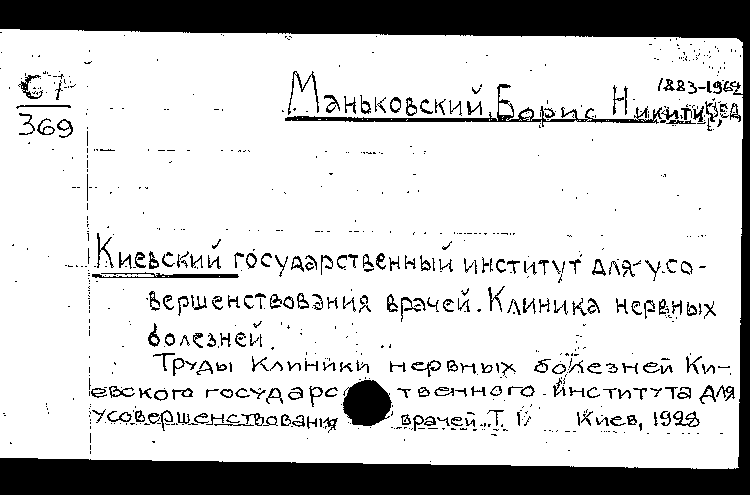 67
369
1883-1962
Маньковский, Борис Никитич, ред
Киевский государственный институт для усо-
вершенствования врачей. Клиника нервных
болезней.
Труды клиники нервных болезней Ки-
евского государственного института для
усовершенствования врачей. Т. 1. Киев, 1928